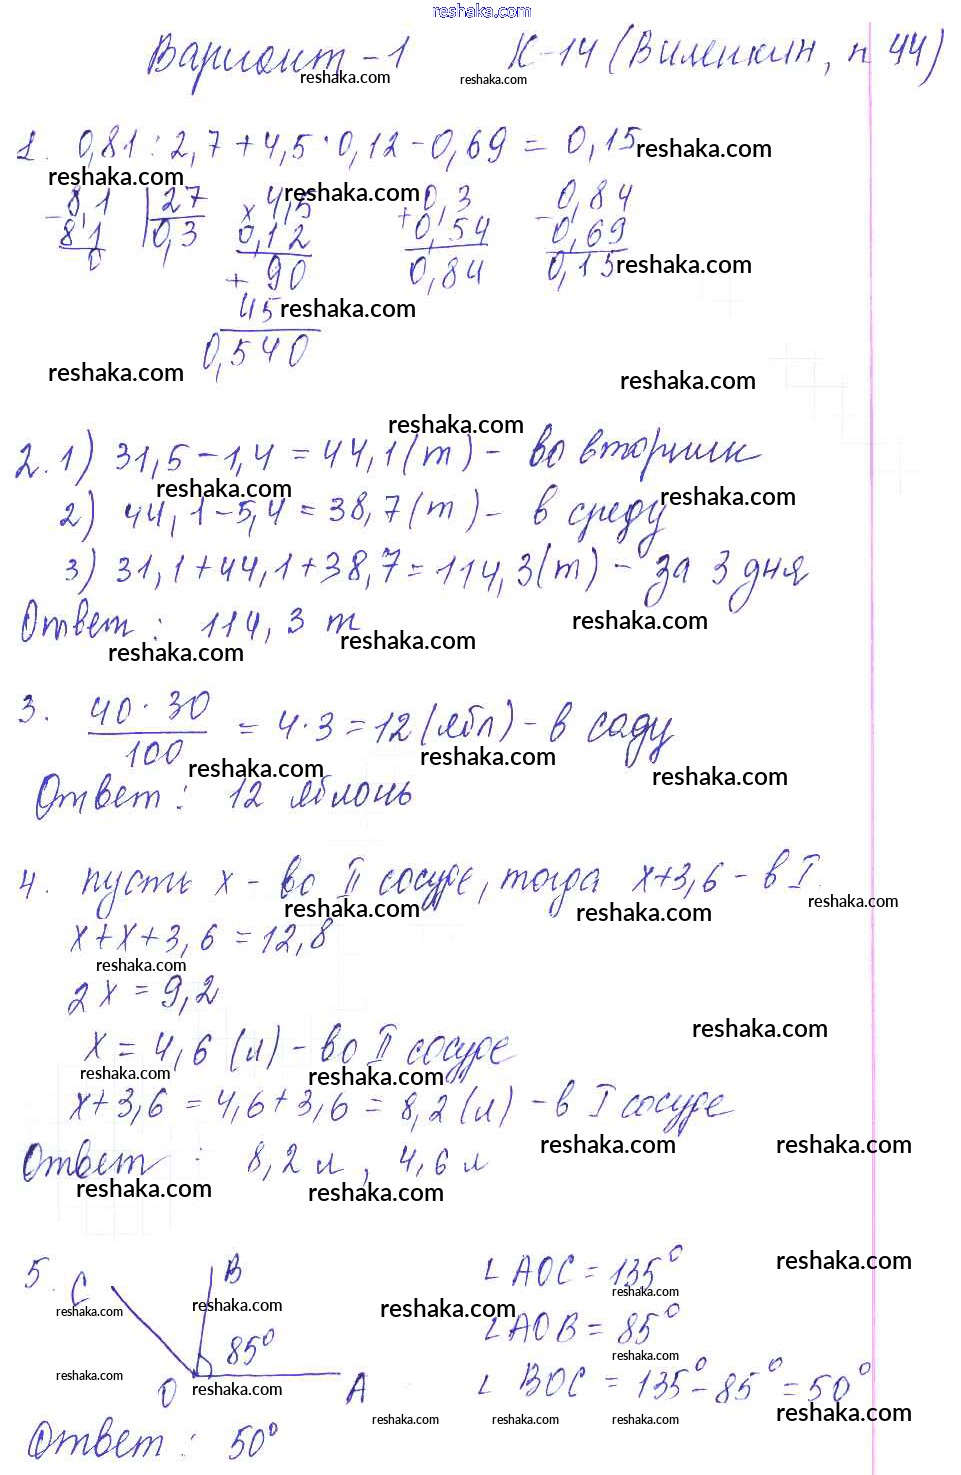 reshaka.com
Вариант -1 К-14 (Виленкин, п 44)
reshaka.com reshaka.com
1. 0,81 : 2,7 + 4,5 · 0,12 - 0,69 = 0,15 reshaka.com
reshaka.com reshaka.com
- 81 | 27 × 4,5 + 0,3 - 0,84
81 0,3 0,12 0,54 0,69
0 + 90 0,84 0,15 reshaka.com
45 reshaka.com
0,540
reshaka.com reshaka.com
reshaka.com
2. 1) 31,5 - 1,4 = 44,1 (т) - во вторник
reshaka.com reshaka.com
2) 44,1 - 5,4 = 38,7 (т) - в среду
3) 31,1 + 44,1 + 38,7 = 114,3 (т) - за 3 дня
Ответ : 114,3 т reshaka.com
reshaka.com reshaka.com
3. 40 · 30
100 = 4 · 3 = 12 (ябл) - в саду
reshaka.com reshaka.com reshaka.com
Ответ : 12 яблонь
4. пусть х - во II сосуде, тогда х+3,6 - в I.
reshaka.com reshaka.com reshaka.com
х + х + 3,6 = 12,8
reshaka.com
2х = 9,2
reshaka.com
х = 4,6 (л) - во II сосуде
reshaka.com reshaka.com
х + 3,6 = 4,6 + 3,6 = 8,2 (л) - в I сосуде
reshaka.com reshaka.com
Ответ : 8,2 л , 4,6 л
reshaka.com reshaka.com
5. C B ∠ AOC = 135° reshaka.com
reshaka.com
reshaka.com reshaka.com reshaka.com ∠ AOB = 85°
85° reshaka.com
reshaka.com O reshaka.com A ∠ BOC = 135° - 85° = 50°
reshaka.com reshaka.com reshaka.com reshaka.com
Ответ : 50°